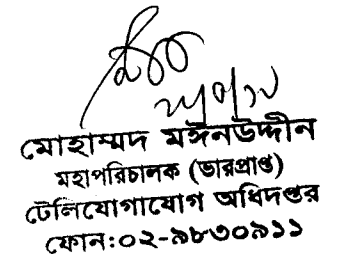 মোহাম্মদ মঈনউদ্দীন
মহাপরিচালক (ভারপ্রাপ্ত)
টেলিযোগাযোগ অধিদপ্তর
ফোন:০২-৯৮৩০৯১১